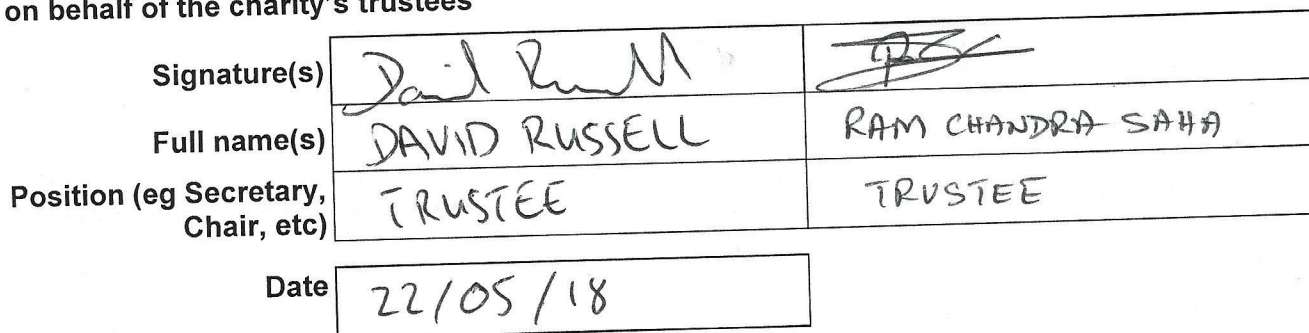 on behalf of the charity's trustees
Signature(s) David Russell
Full name(s) DAVID RUSSELL RAM CHANDRA SAHA
Position (eg Secretary, TRUSTEE TRUSTEE
Chair, etc)
Date 22/05/18